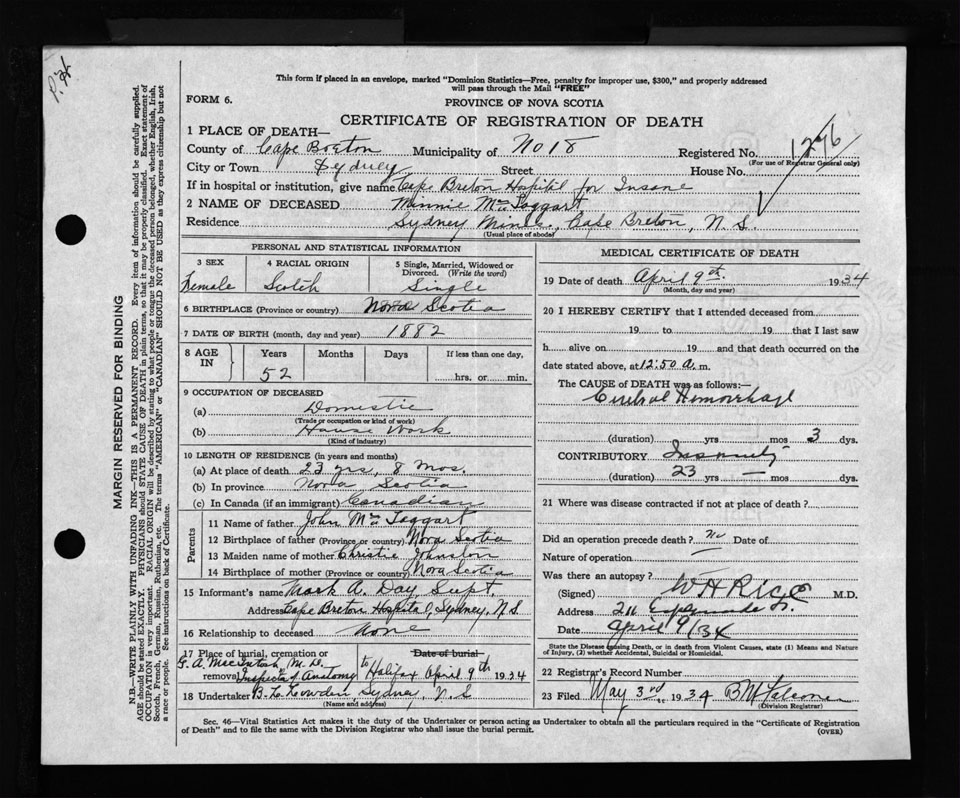 P. 76
This form if placed in an envelope, marked "Dominion Statistics—Free, penalty for improper use, $300," and properly addressed
will pass through the Mail "FREE"
FORM 6.
PROVINCE OF NOVA SCOTIA
CERTIFICATE OF REGISTRATION OF DEATH
1 PLACE OF DEATH—
County of Cape Breton Municipality of No 18 Registered No. 1276
(For use of Registrar General only)
City or Town Sydney Street House No.
If in hospital or institution, give name Cape Breton Hospital for Insane
2 NAME OF DECEASED Minnie McTaggart
Residence Sydney Mines, Cape Breton, N. S.
(Usual place of abode)
PERSONAL AND STATISTICAL INFORMATION
3 SEX 4 RACIAL ORIGIN 5 Single, Married, Widowed or
Divorced. (Write the word)
Female Scotch Single
6 BIRTHPLACE (Province or country) Nova Scotia
7 DATE OF BIRTH (month, day and year) 1882
8 AGE IN Years Months Days If less than one day,
52 hrs. or min.
9 OCCUPATION OF DECEASED
(a) Domestic
(Trade or occupation or kind of work)
(b) House Work
(Kind of industry)
10 LENGTH OF RESIDENCE (in years and months)
(a) At place of death 23 yrs, 8 Mos.
(b) In province Nova Scotia
(c) In Canada (if an immigrant) Canadian
Parents
11 Name of father John McTaggart
12 Birthplace of father (Province or country) Nova Scotia
13 Maiden name of mother Christie Johnston
14 Birthplace of mother (Province or country) Nova Scotia
15 Informant's name Mark A. Day, Supt.
Address Cape Breton Hospital, Sydney, N.S
16 Relationship to deceased None
17 Place of burial, cremation or Date of burial
G. A. MacIntosh M. D.
removal Inspector of Anatomy to Halifax April 9th 1934
18 Undertaker Sydney, N. S
(Name and address)
MEDICAL CERTIFICATE OF DEATH
19 Date of death April 9th. 1934
(Month, day and year)
20 I HEREBY CERTIFY that I attended deceased from
19 to 19 that I last saw
h alive on 19 and that death occurred on the
date stated above, at 12:50 A. m.
The CAUSE OF DEATH was as follows:—
Cerebral Hemorrhage
(duration) yrs mos 3 dys.
CONTRIBUTORY Insanity
(duration) 23 —
21 Where was disease contracted if not at place of death?
Did an operation precede death? No Date of
Nature of operation
Was there an autopsy?
(Signed) W H Rice M.D.
Address 211 Esplanade St.
Date April 9/34
State the Disease causing Death, or in death from Violent Causes, state (1) Means and Nature
of Injury, (2) whether Accidental, Suicidal or Homicidal.
22 Registrar's Record Number
23 Filed May 3rd, 1934
(Division Registrar)
Sec. 46—Vital Statistics Act makes it the duty of the Undertaker or person acting as Undertaker to obtain all the particulars required in the "Certificate of Registration
of Death" and to file the same with the Division Registrar who shall issue the burial permit.
(OVER)
MARGIN RESERVED FOR BINDING
N.B.—WRITE PLAINLY WITH UNFADING INK—THIS IS A PERMANENT RECORD. Every item of information should be carefully supplied.
AGE should be stated EXACTLY. PHYSICIANS should STATE CAUSE OF DEATH in plain terms, so that it may be properly classified. Exact statement of
OCCUPATION is very important. RACIAL ORIGIN will be described by stating to what people or tongue the deceased person belonged, whether English, Irish,
Scotch, French, German, Russian, Ruthenian, etc. The terms "AMERICAN" or "CANADIAN" SHOULD NOT BE USED as they express citizenship but not
a race or people. See instructions on back of Certificate.